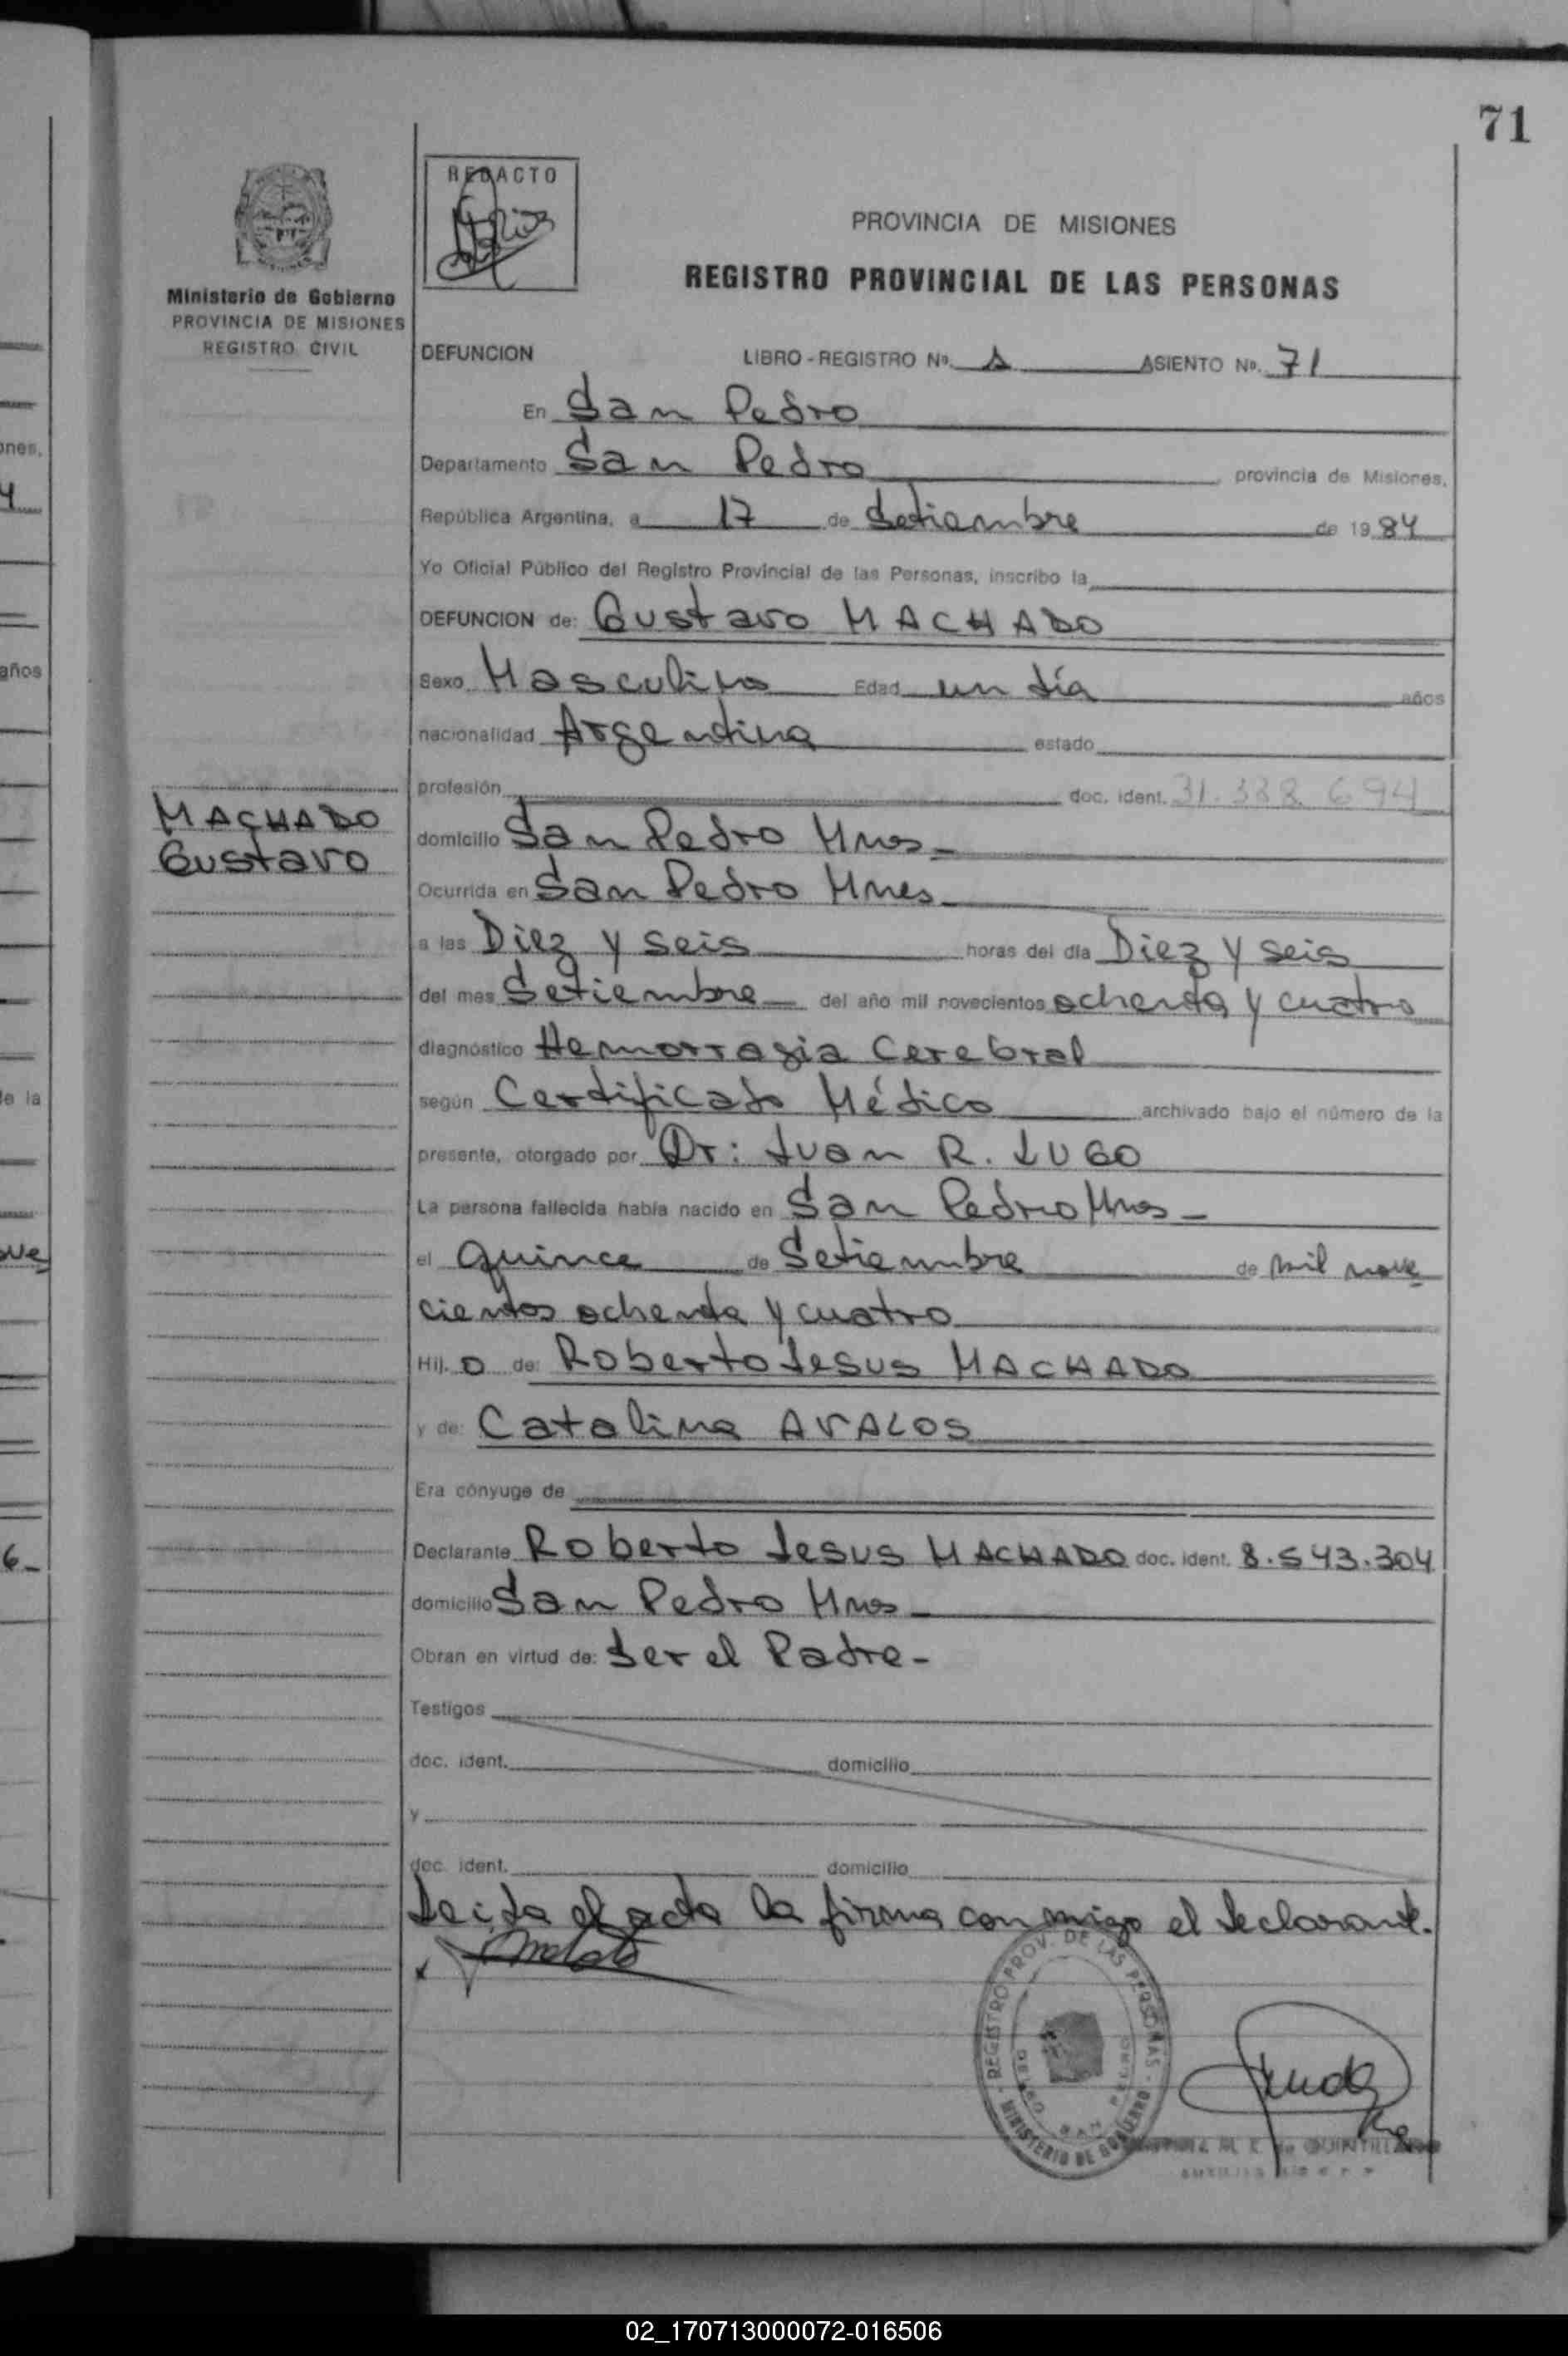 71
REDACTO
PROVINCIA DE MISIONES
REGISTRO PROVINCIAL DE LAS PERSONAS
Ministerio de Gobierno
PROVINCIA DE MISIONES
REGISTRO CIVIL
DEFUNCION LIBRO - REGISTRO Nº. A ASIENTO Nº. 71
En San Pedro
Departamento San Pedro, provincia de Misiones,
República Argentina, a 17 de Setiembre de 1984
Yo Oficial Público del Registro Provincial de las Personas, inscribo la
DEFUNCION de: Gustavo MACHADO
Sexo Masculino Edad un día años
nacionalidad Argentina estado
profesión doc. ident. 31.338.694
MACHADO
Gustavo
domicilio San Pedro Mnes-
Ocurrida en San Pedro Mnes
a las Diez y seis horas del día Diez y seis
del mes Setiembre del año mil novecientos ochenta y cuatro
diagnóstico Hemorragia Cerebral
según Certificado Médico archivado bajo el número de la
presente, otorgado por Dr: Juan R. LUGO
La persona fallecida había nacido en San Pedro Mnes-
el quince de Setiembre de mil nove
cientos ochenta y cuatro
Hij. o de: Roberto Jesus MACHADO
y de: Catalina AVALOS
Era cónyuge de
Declarante Roberto Jesus MACHADO doc. ident. 8.543.304
domicilio San Pedro Mnes-
Obran en virtud de: Ser el Padre-
Testigos
doc. ident. domicilio
y
doc. ident. domicilio
Leida el acta la firma conmigo el declarante.
REGISTRO PROV. DE LAS PERSONAS
MINISTERIO DE GOBIERNO
SAN PEDRO
de QUINTILLANO
02_170713000072-016506